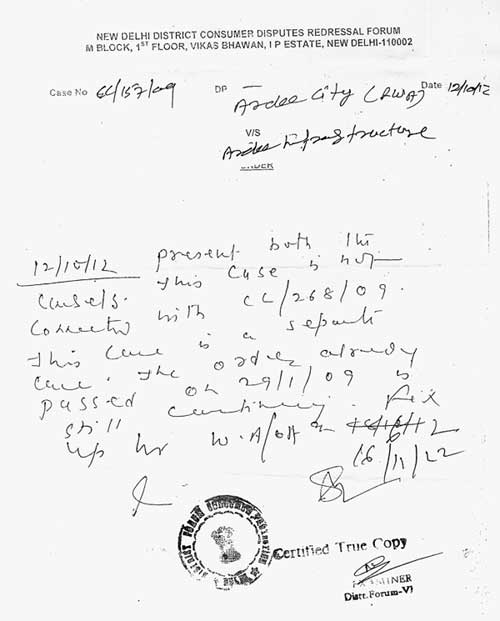 NEW DELHI DISTRICT CONSUMER DISPUTES REDRESSAL FORUM
M BLOCK, 1ST FLOOR, VIKAS BHAWAN, I P ESTATE, NEW DELHI-110002
Case No CC/157/09 DP Ardee City (RWA) Date 12/10/12
V/S
Ardee Infrastructure
ORDER
12/10/12 present both the
This case is not
connected with CC/268/09.
This case is a separate
case. The order already
passed on 29/1/09 is
still continuing. Fix
up for W.A/
16/11/12
Certified True Copy
EXAMINER
Distt. Forum-VI